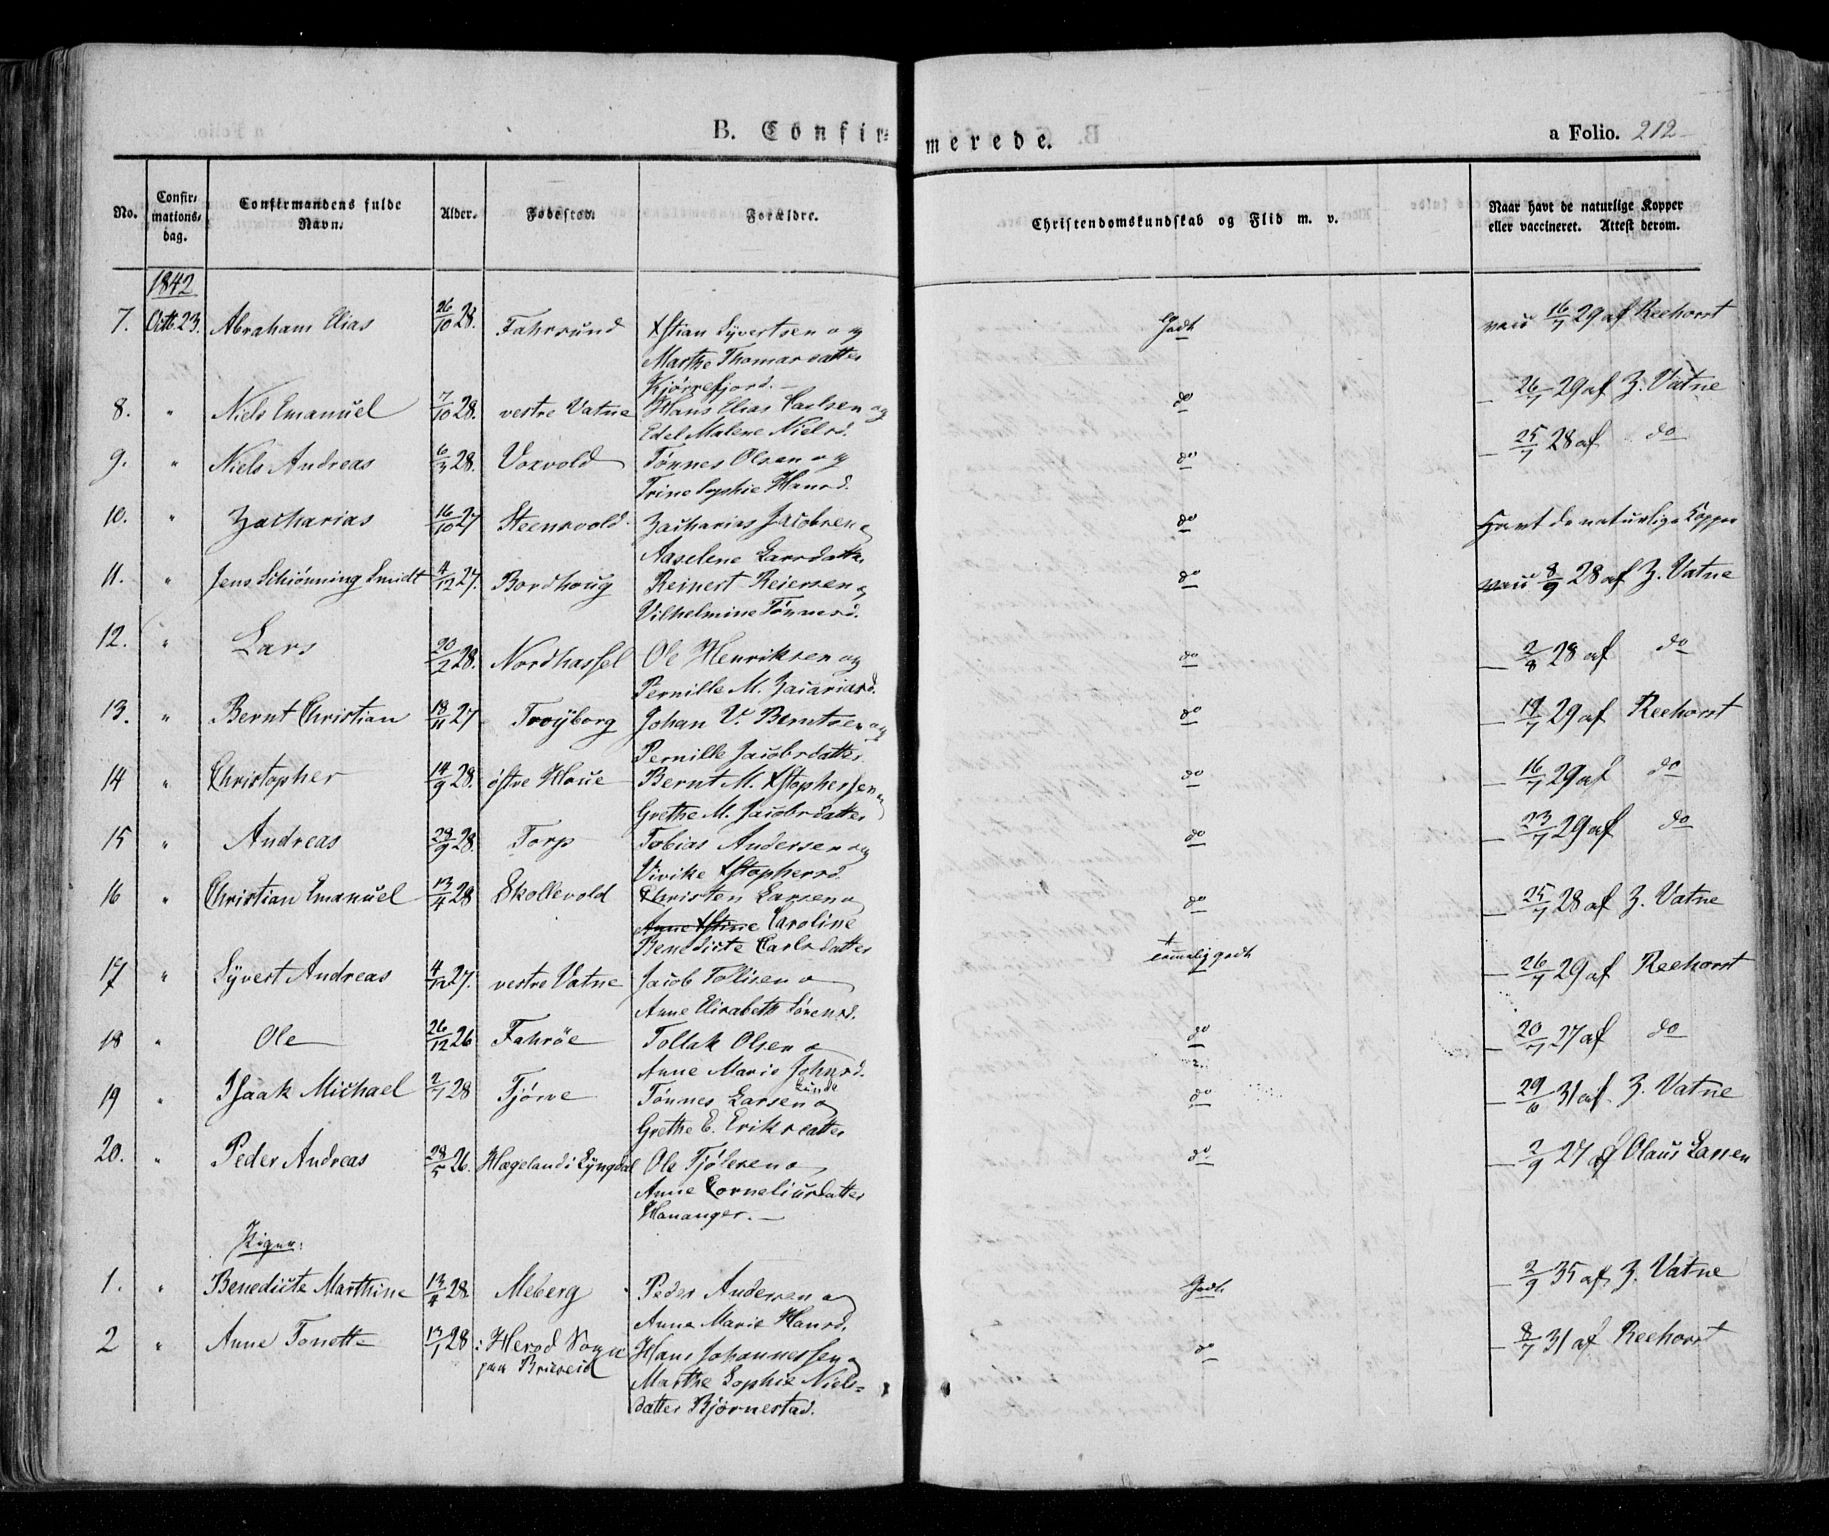 B. Confir= merede. a Folio. 212
No. Confir= mations= dag. Confirmandens fulde Navn. Alder. Fødested. Forældre. Christendomskundskab og Flid m. v. Naar havt de naturlige Kopper eller vaccineret. Attest derom.
1842
7. Octb 23. Abraham Elias 26/10 28. Fahrsund Xstian Syvertsen og Godt vacc 16/7 29 af Reehorst
Marthe Thomasdatter
Kjørrefjord.
8. " Niels Emanuel 7/10 28. vestre Vatne Hans Elias Carlsen og do — 26/7 29 af Z. Vatne
Edel Malene Nielsd.
9. " Niels Andreas 6/3 28. Voxvold Tønnes Olsen og do — 25/7 28 af do
Trine Sophie Hansd.
10. " Zacharias 16/10 27 Steensvold Zacharias Jacobsen og do Havt de naturlige Kopper
Aaselene Larsdatte
11. " Jens Schiønning Smidt 4/12 27. Bordhoug Reinert Reiersen og do vacc 8/9 28 af Z. Vatne
Vilhelmine Tønnesd.
12. " Lars 20/2 28. Nordhassel Ole Henriksen og do — 2/8 28 af do
Pernille M. Zacariasd.
13. " Bernt Christian 18/11 27 Trøyborg Johan V. Berntsen og do — 19/7 29 af Reehorst
Pernille Jacobsdatter
14 " Christopher 14/9 28. østre Houe Bernt M. Xstophersen og do — 16/7 29 af do
Grethe M. Jacobsdatter
15 " Andreas 28/9 28. Torp Tobias Andersen og do — 23/7 29 af do
Vivike Xstophersd.
16 " Christian Emanuel 13/4 28 Skollevold Christen Larsen og do — 25/7 28 af Z. Vatne
Anne Xstine Caroline
Benedicte Carlsdatter
17 " Syvert Andreas 4/12 27. vestre Vatne Jacob Tollisen og temmelig godt — 26/7 29 af Reehorst
Anne Elisabeth Sørensd.
18 " Ole 26/12 26 Fahrøe Tollak Olsen og do — 20/7 27 af do
Anne Marie Johnsd.
Lunde
19 " Isaak Michael 2/1 28 Tjørve Tønnes Larsen og do — 29/6 31 af Z. Vatne
Grethe E. Eriksdatter
20. " Peder Andreas 28/5 26. Hægeland i Lyngdal Ole Tjølsen og do — 2/9 27 af Olaus Lassen
Anne Corneliusdatter
Hananger. —
Piger:
1. " Benedicte Marthine 13/4 28. Meberg Peder Andersen og Godt — 2/9 35 af Z. Vatne
Anne Marie Hansd.
2 " Anne Tonette 13/1 28 i Herod Sogn Hans Johannessen og do — 8/7 31 af Reehorst
paa Brüseid Marthe Sophie Niels=
datter Bjørnestad.